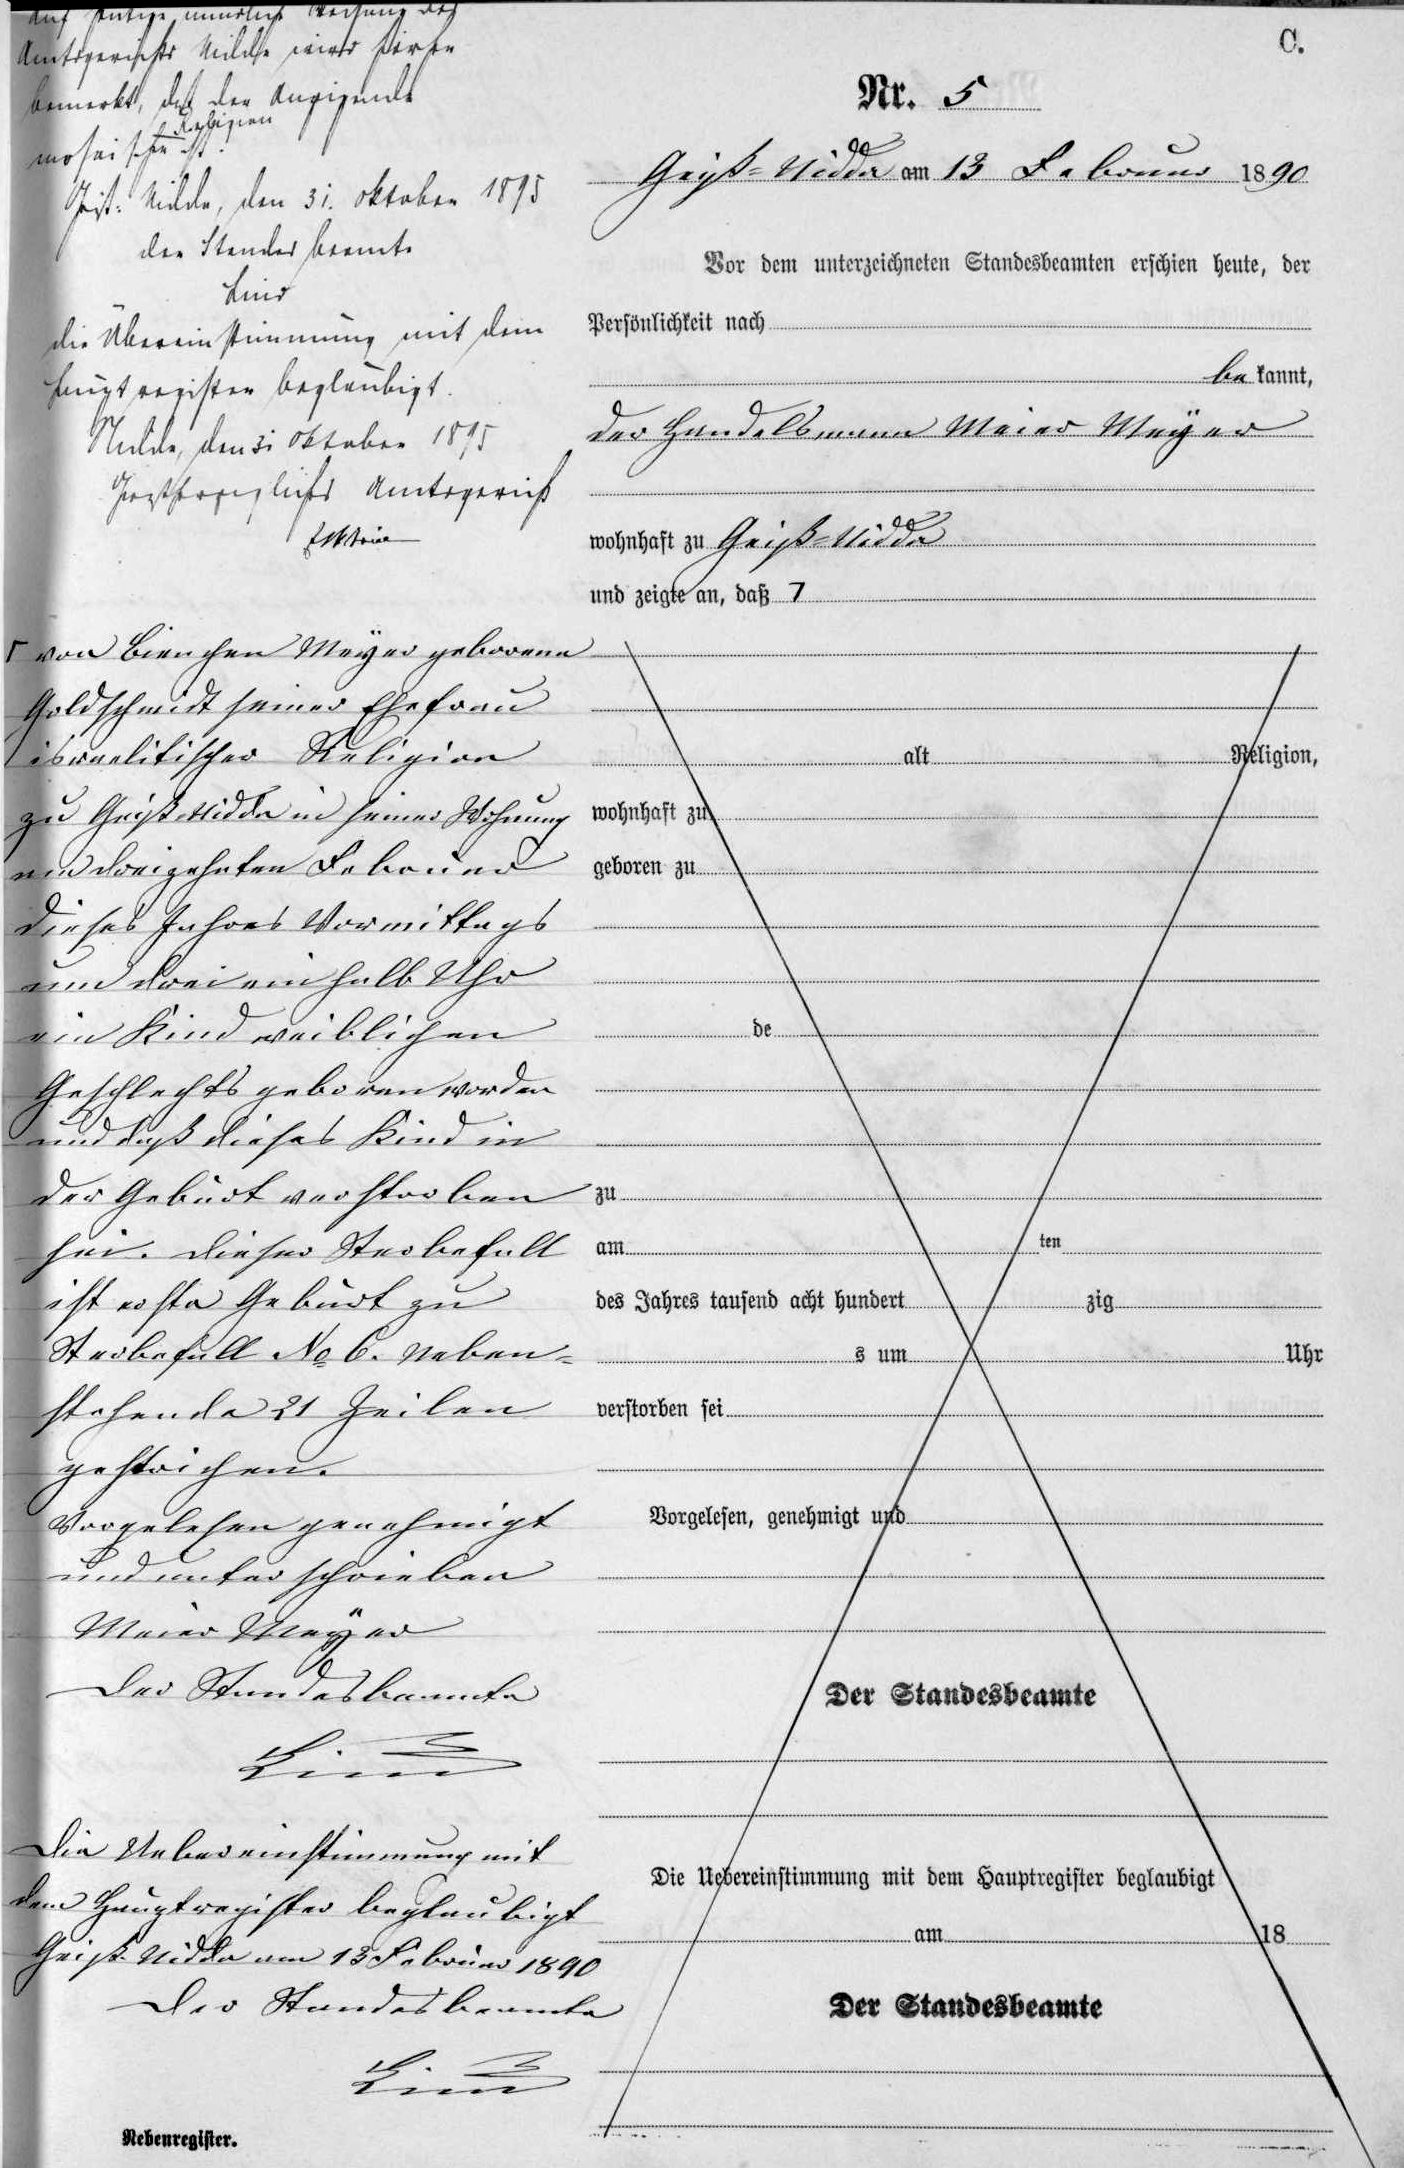 Auf heutige mündliche Weisung des
Amtsgerichts Nidda wird hier
bemerkt, daß der Anzeigende
mosaischer Religion ist.
Geiß-Nidda, den 31. Oktober 1895
der Standesbeamte
Lind
die Übereinstimmung mit dem
Hauptregister beglaubigt.
Nidda, den 31 Oktober 1895
Großherzogliches Amtsgericht
C.
Nr. 5
Geiß-Nidda am 13 Februar 1890
Vor dem unterzeichneten Standesbeamten erschien heute, der
Persönlichkeit nach
be kannt,
der Handelsmann Meier Meyer
wohnhaft zu Geiß-Nidda
und zeigte an, daß 7
Γ von Bienchen Meyer geborene
Goldschmidt seiner Ehefrau
israelitischer Religion
zu Geiß-Nidda in seiner Wohnung
am dreizehnten Februar
dieses Jahres Vormittags
um drei einhalb Uhr
ein Kind weiblichen
Geschlechts geboren worden
und daß dieses Kind in
der Geburt verstorben
sei. Dieser Sterbefall
ist erste Geburt zu
Sterbefall No 6. Neben-
stehende 21 Zeilen
gestrichen.
Vorgelesen genehmigt
und unterschrieben
Meier Meyer
Der Standesbeamte
Lind
Die Uebereinstimmung mit
dem Hauptregister beglaubigt
Geiß-Nidda am 13 Februar 1890
Der Standesbeamte
Lind
alt Religion,
wohnhaft zu
geboren zu
de
zu
am ten
des Jahres tausend acht hundert zig
s um Uhr
verstorben sei
Vorgelesen, genehmigt und
Der Standesbeamte
Die Uebereinstimmung mit dem Hauptregister beglaubigt
am 18
Der Standesbeamte
Nebenregister.